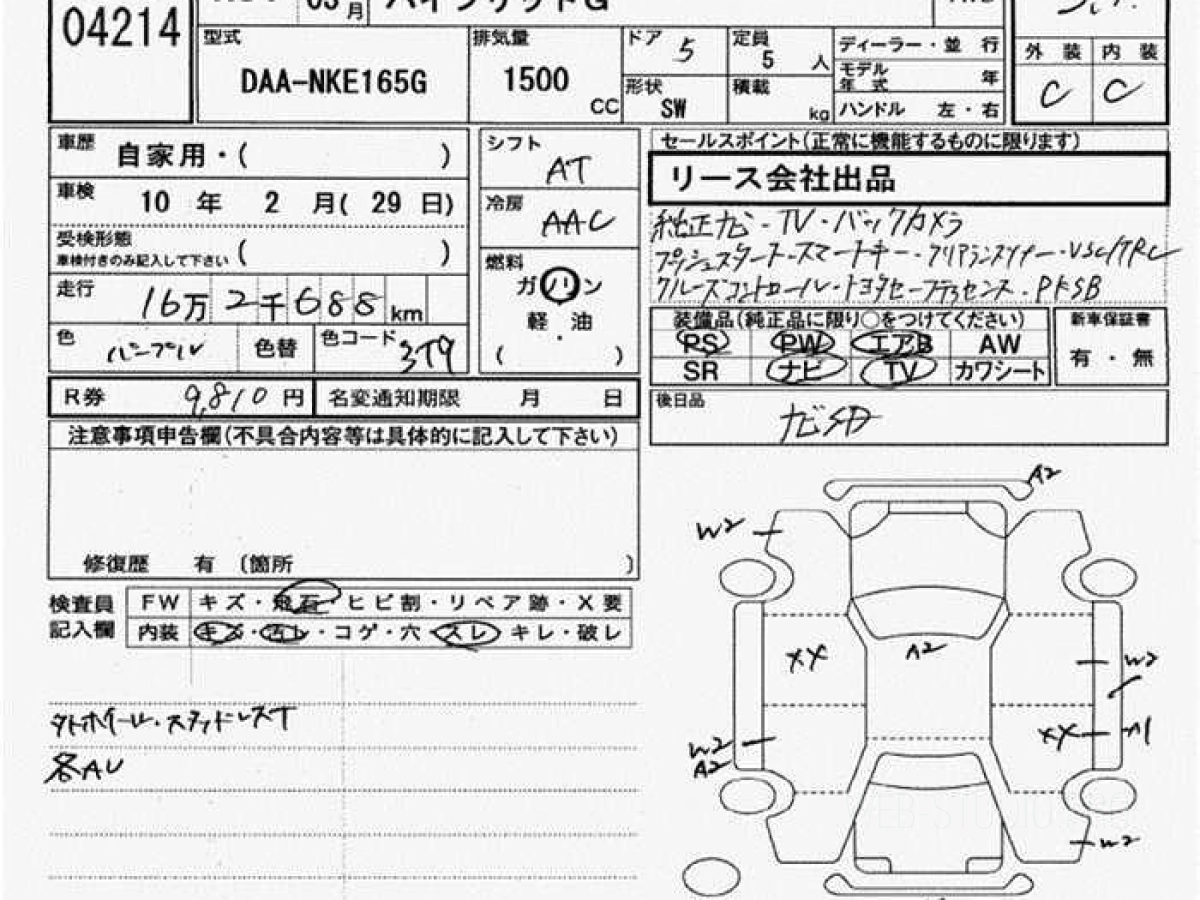 04214
月
ハイブリッドG
型式
DAA-NKE165G
排気量
1500
CC
ドア 5
定員
5 人
形状
SW
積載
kg
ディーラー・並 行
モデル
年 式 年
ハンドル 左・右
外 装 内 装
C C
車歴
自家用・( )
車検
10 年 2 月( 29 日)
受検形態
車検付きのみ記入して下さい ( )
走行
16万2千688 km
色
パープル
色替
色コード 3T9
シフト
AT
冷房
AAC
燃料
ガソリン
軽・油
( )
R券 9,810 円
名変通知期限 月 日
注意事項申告欄(不具合内容等は具体的に記入して下さい)
修復歴 有 〔箇所 〕
検査員
記入欄
FW キズ・飛石・ヒビ割・リペア跡・X要
内装 キズ・汚レ・コゲ・穴・スレ・キレ・破レ
タトホイール・スタッドレスT
各AU
セールスポイント(正常に機能するものに限ります)
リース会社出品
純正ナビ・TV・バックカメラ
プッシュスタート・スマートキー・クリアランスソナー・VSC/TRC
クルーズコントロール・トヨタセーフティセンス・PKSB
装備品(純正品に限り○をつけてください)
PS PW エアB AW
SR ナビ TV カワシート
新車保証書
有・無
後日品
ナビSD
A2
W2
XX
A2
W2
XX A1
W2
A2
W2